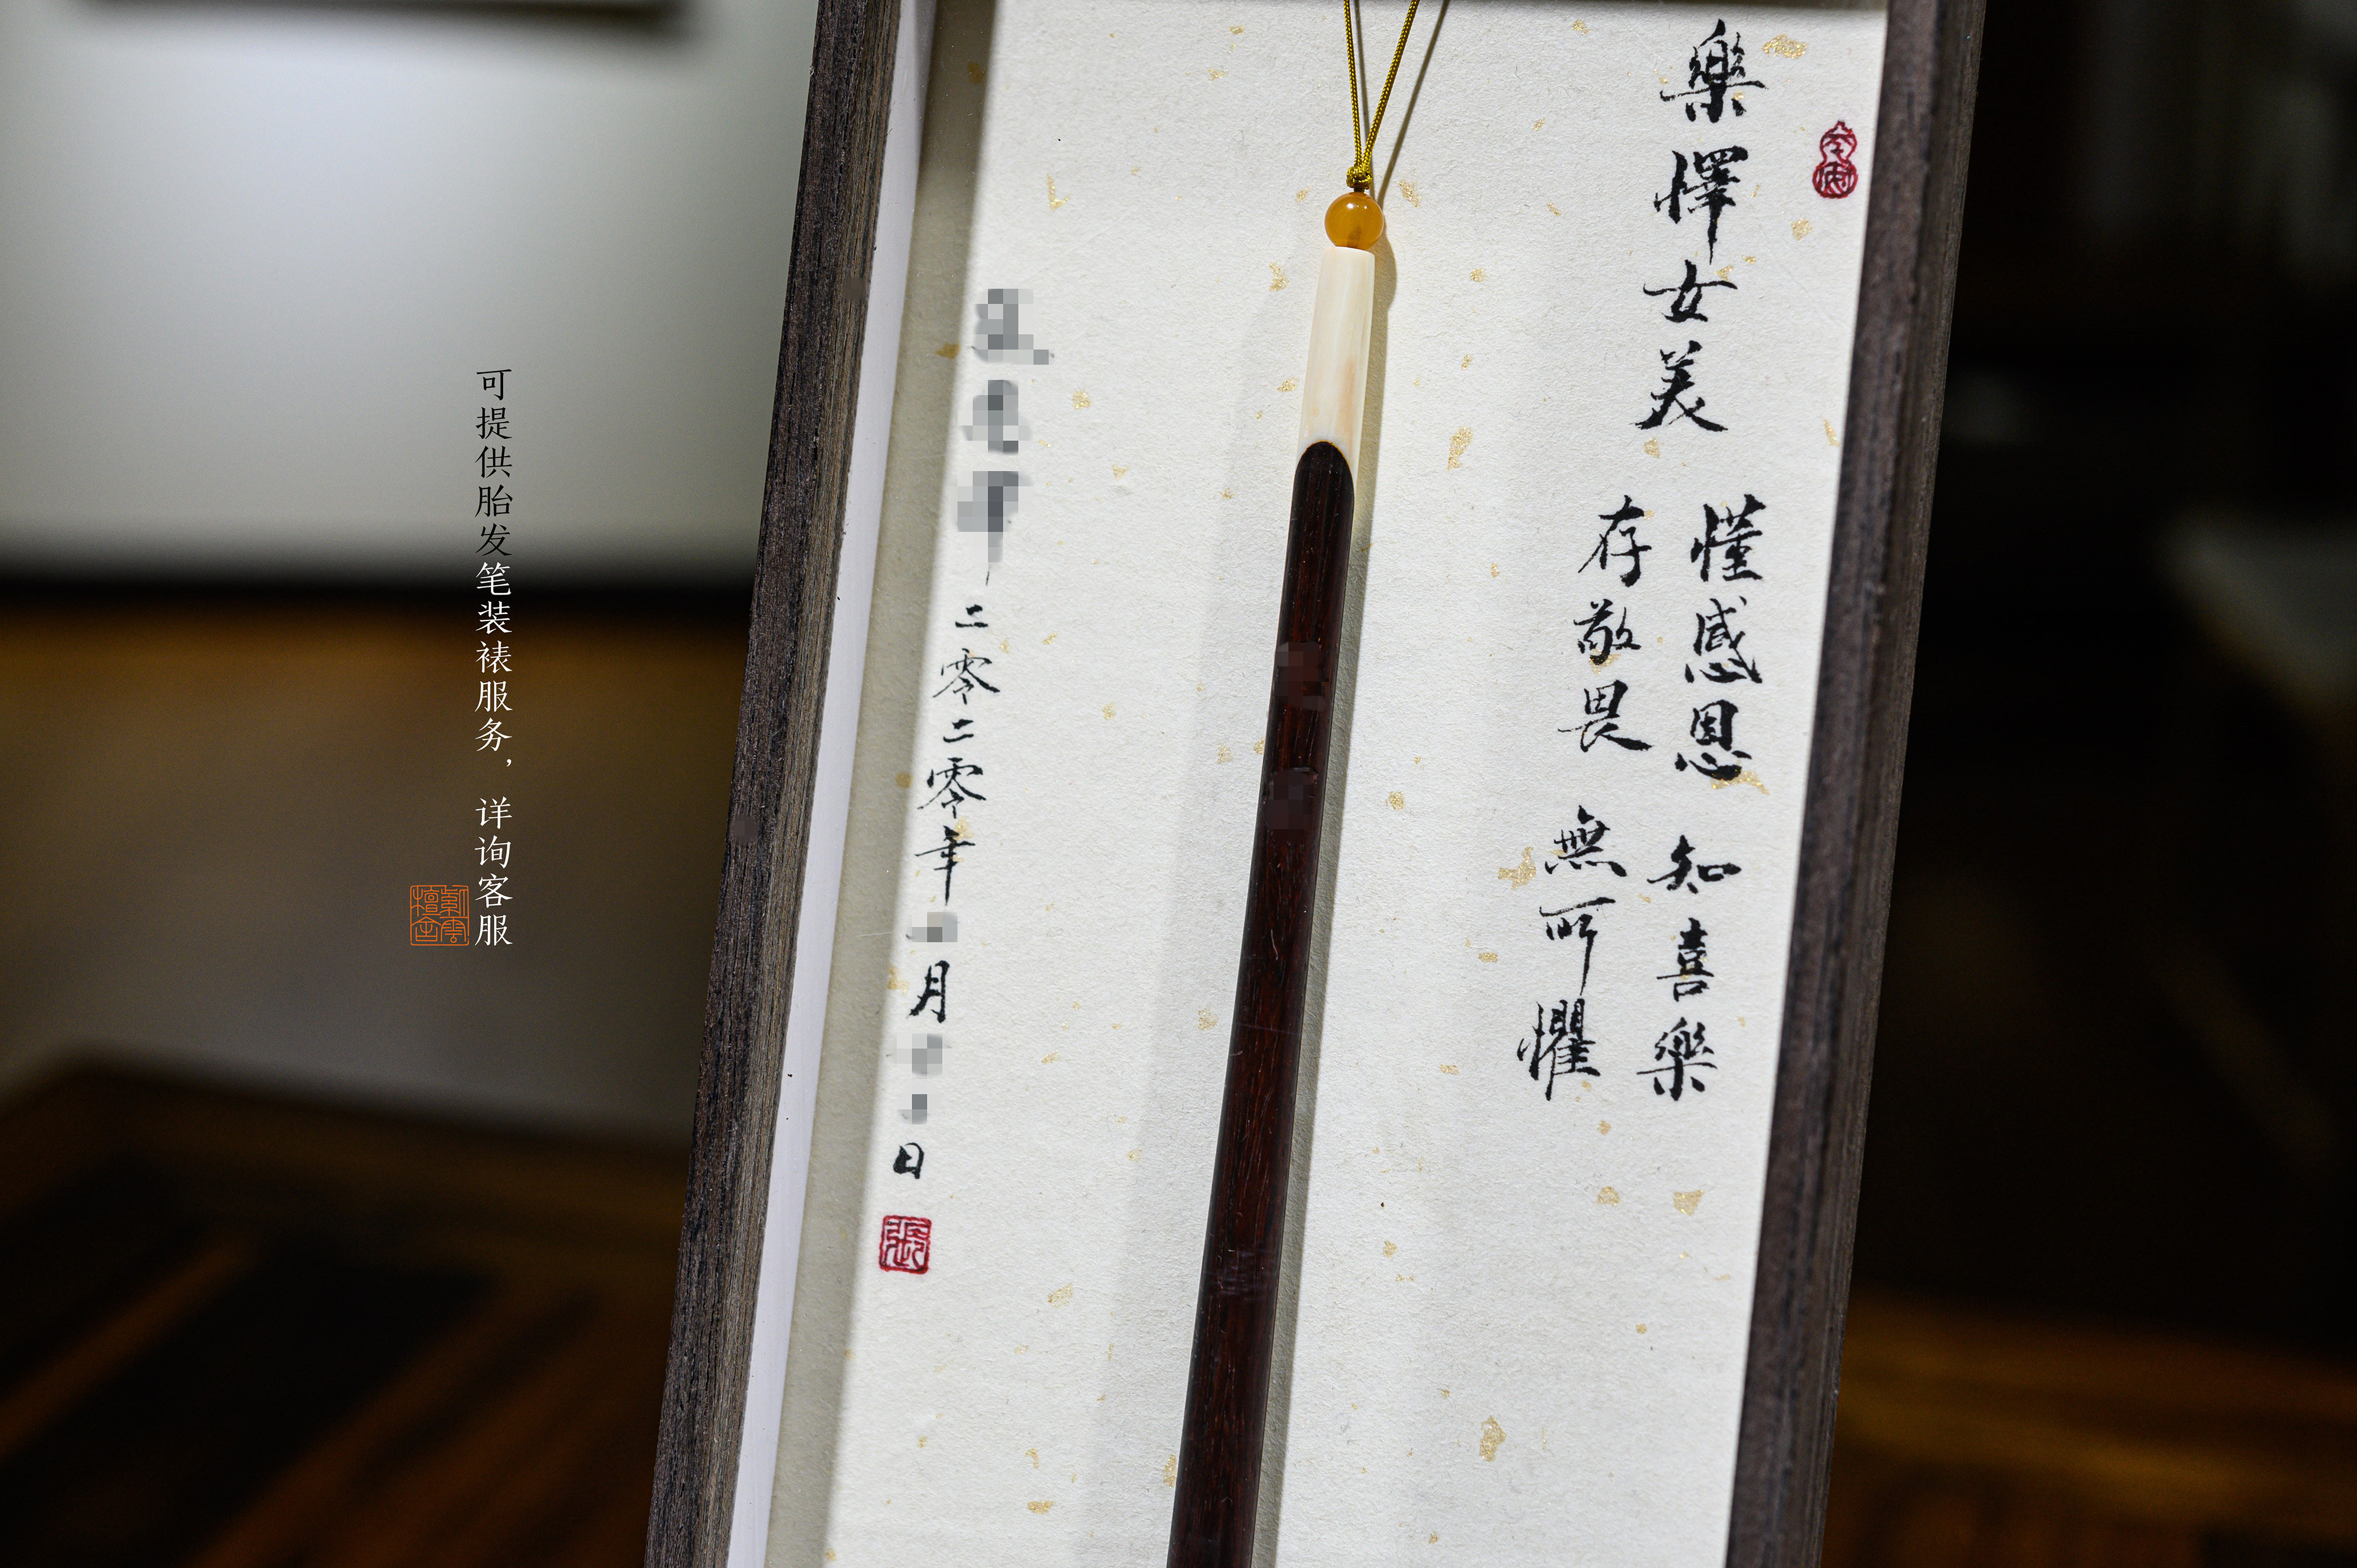 樂懌女美
懂感恩 知喜樂
存敬畏 無所懼
二零二零年 月 日
張
可提供胎发笔装裱服务，详询客服
紫雲檀舍